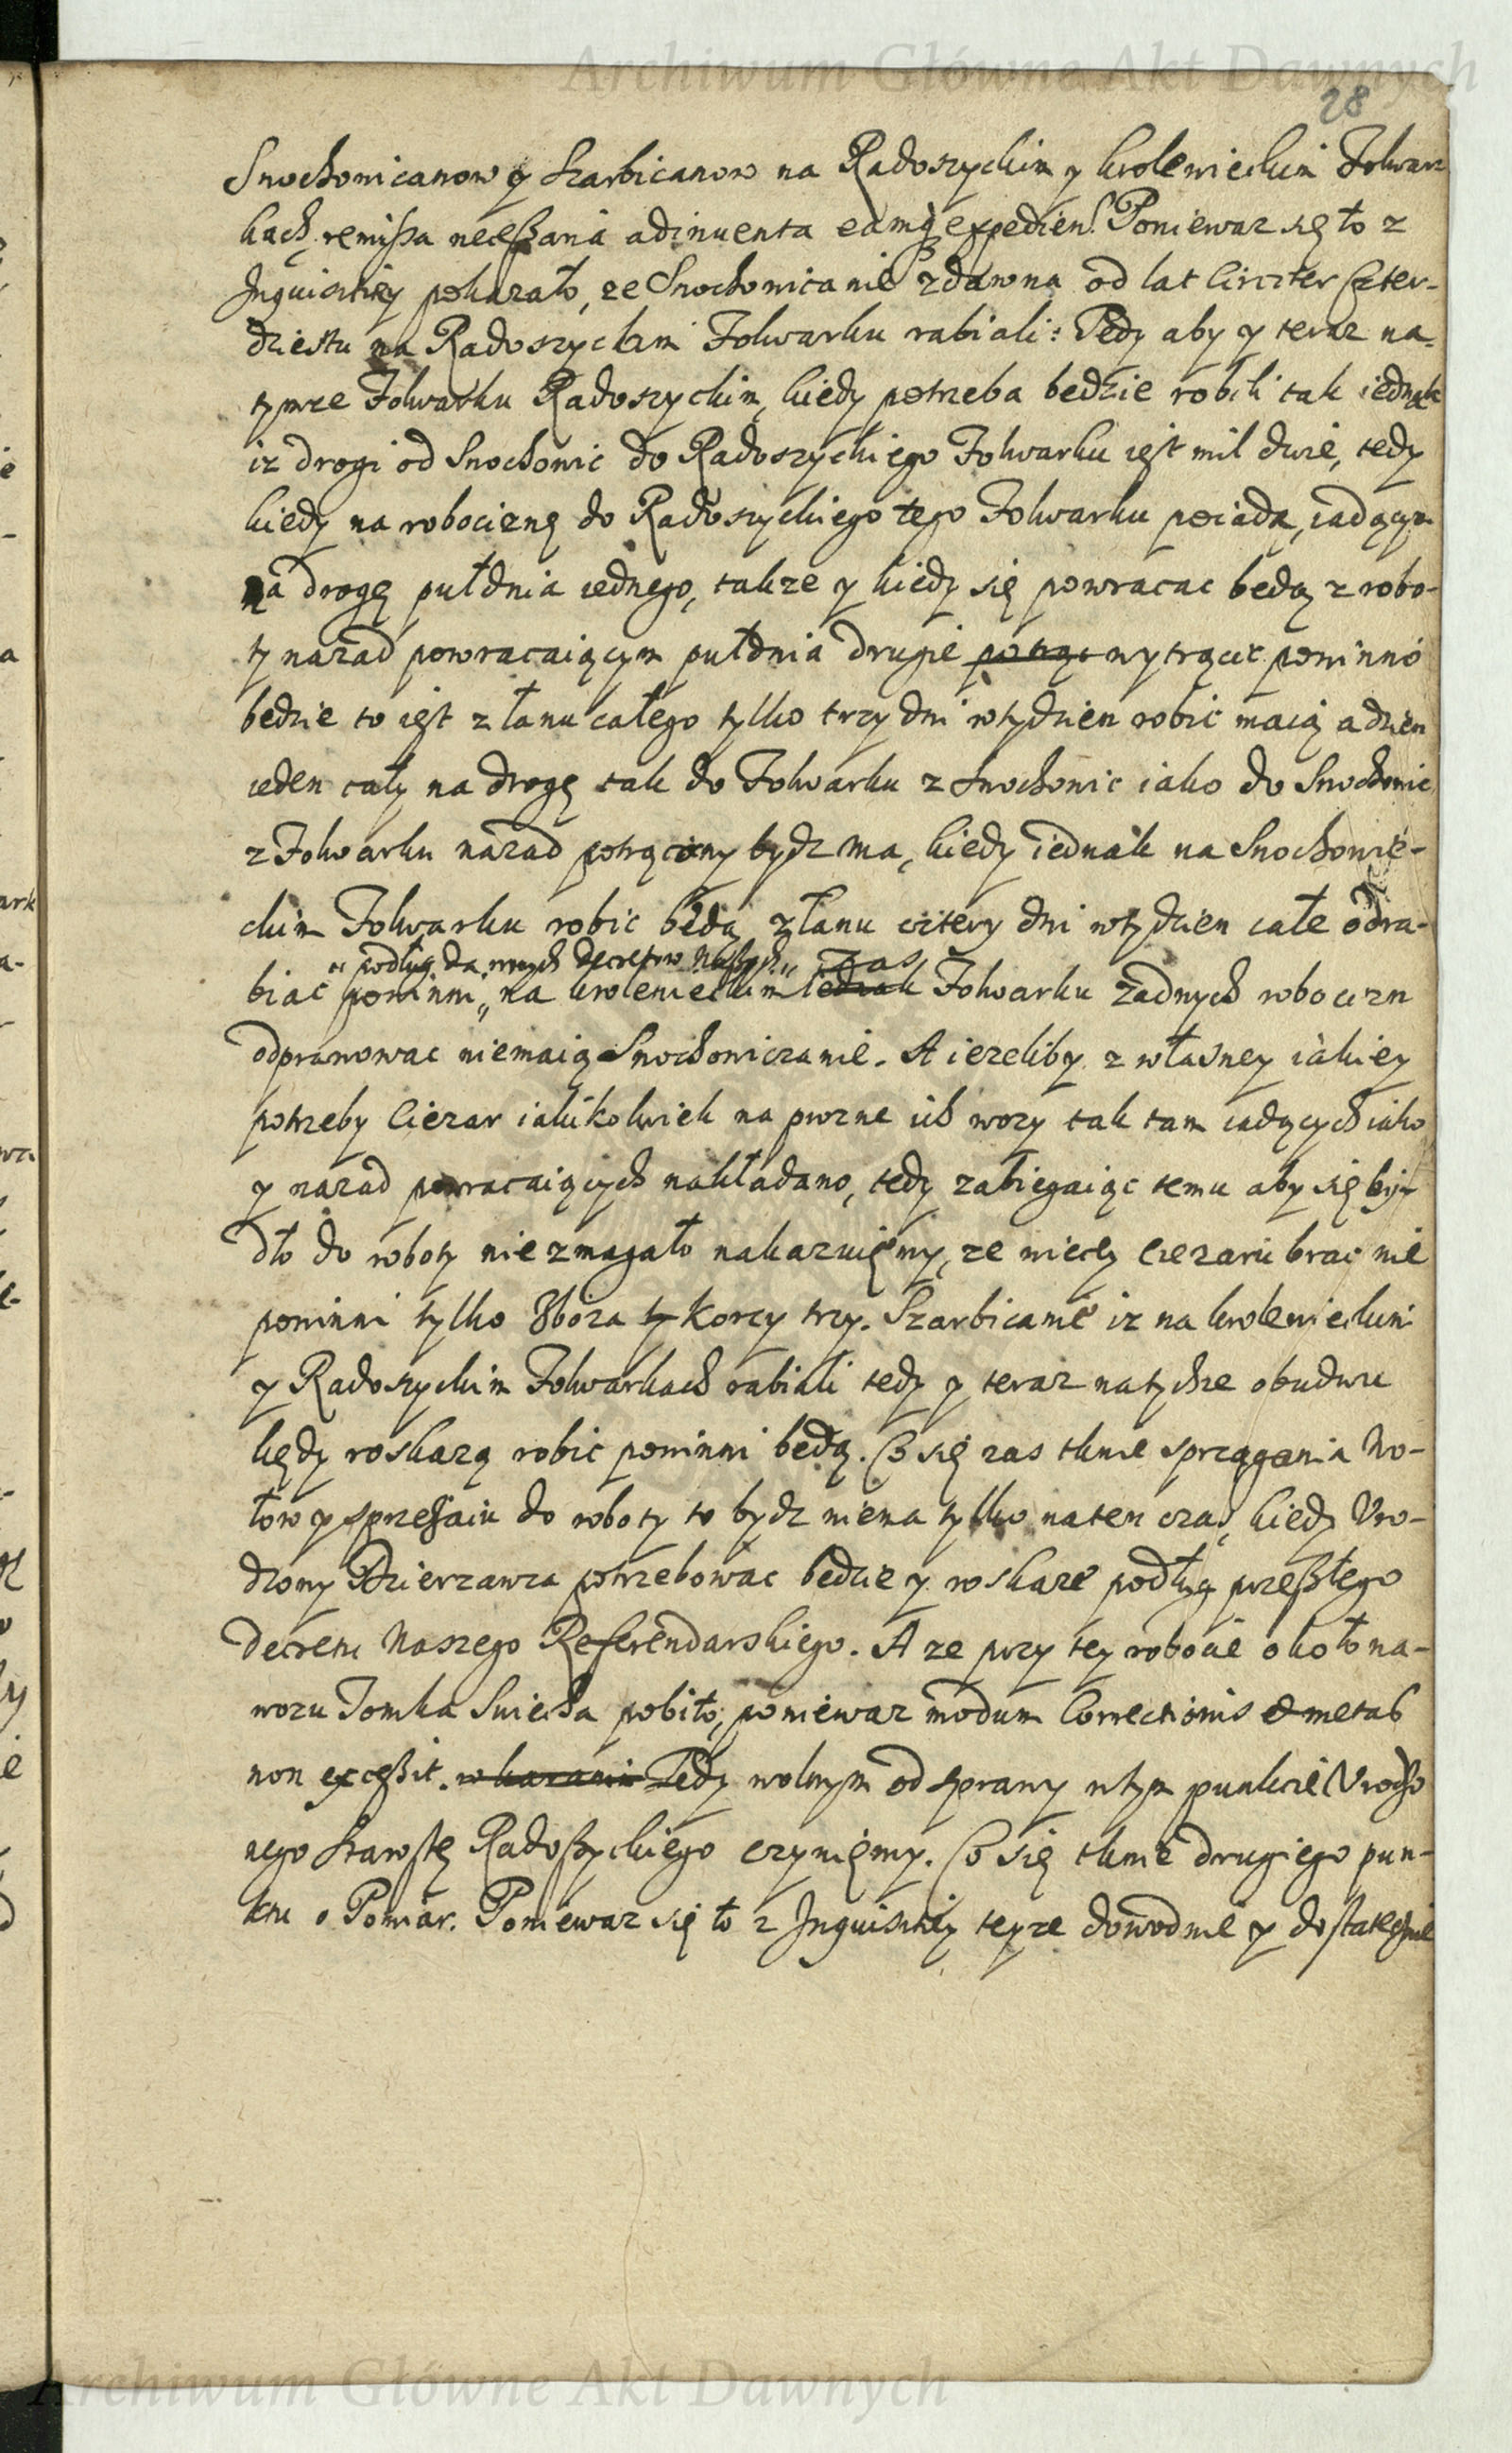 Archiwum Główne Akt Dawnych
28
Snochowicanow y Szarbicanow na Radoszyckim y krolewieckim Folwar
kach remissa necessaria adinuenta eamq expedien. Poniewaz się to z
Inquisitiey pokazało, ze Snochowicanie zdawna od lat Circiter Czter-
dziestu na Radoszyckim Folwarku rabiali: Tedy aby y teraz na
tymze Folwarku Radoszyckim, kiedy potrzeba bedzie robili tak iednak
iz drogi od Snochowic do Radoszyckiego Folwarku iest mil dwie, tedy
kiedy na robociznę do Radoszyckiego tego Folwarku poiadą, iadącym
na drogę pułdnia iednego, takze y kiedy się powracac będą z robo-
ty nazad powracaiącym pułdnia drugie potrąc wytrącic powinno
bedzie to iest z łanu całego tylko trzy dni wtydzien robic maią a dzien
ieden cały na drogę tak do Folwarku z Snochowic iako do Snochowic
z Folwarku nazad potrącony bydz ma, kiedy iednak na Snochowie-
ckim Folwarku robic będą z łanu cztery dni wtydzien całe odra-
" podług dawnych decretow Naszych " zas
biac powinni " na krolewieckim iednak Folwarku zadnych robocizn
odprawowac niemaią Snochowiczanie. A iezeliby z własney iakiey
potrzeby Ciezar iakikolwiek na prozne ich wozy tak tam iadących iako
y nazad powracaiących nakładano, tedy zabiegaiąc temu aby się by
dło do roboty nie zmagało nakazuięmy, ze więcy Ciezaru brac nie
powinni tylko Zboza ty Korcy trzy. Szarbicanie iz na krolewieckim
y Radoszyckim Folwarkach rabiali tedy y teraz natychze obudwu
kędy roskazą robic powinni będą. Co się zas tknie sprzągania Wo-
łow y sprzęzaiu do roboty to bydz niema tylko naten czas, kiedy Vro-
dzony Dzierzawca potrzebowac bedzie y roskaze podług przeszłego
decretu Naszego Referendarskiego. A ze przy tey robocie około na-
wozu Tomka Swiecha pobito, poniewaz modum Correctionis & metas
non excessit. w karaniu Tedy wolnym od sprawy wtym punkcie Vrodzo
nego Starostę Radoszyckiego czynięmy. Co się tknie drugiego pun-
ktu o Pomiar. Poniewaz się to z Inquisitiey teyze dowodnie y dostatecznie
Archiwum Główne Akt Dawnych